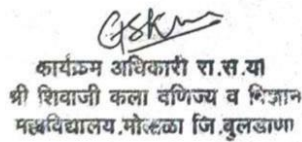 कार्यक्रम अधिकारी रा.स.या
श्री शिवाजी कला वणिज्य व विज्ञान
महाविद्यालय.मोताळा जि.बुलडाणा